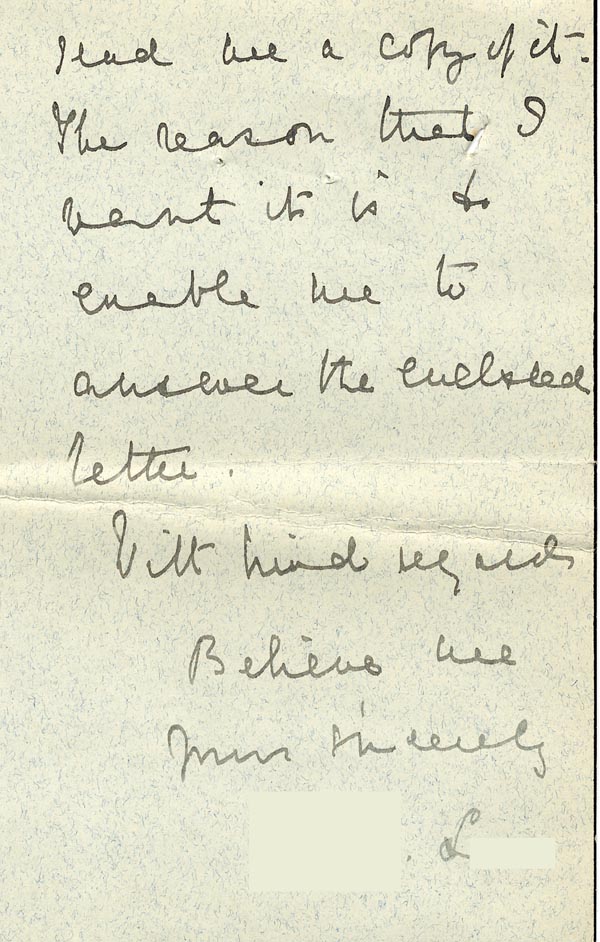 send me a copy of it.
The reason that I
want it is to
enable me to
answer the enclosed
letter.
With kind regards
Believe me
Yours sincerely
. L